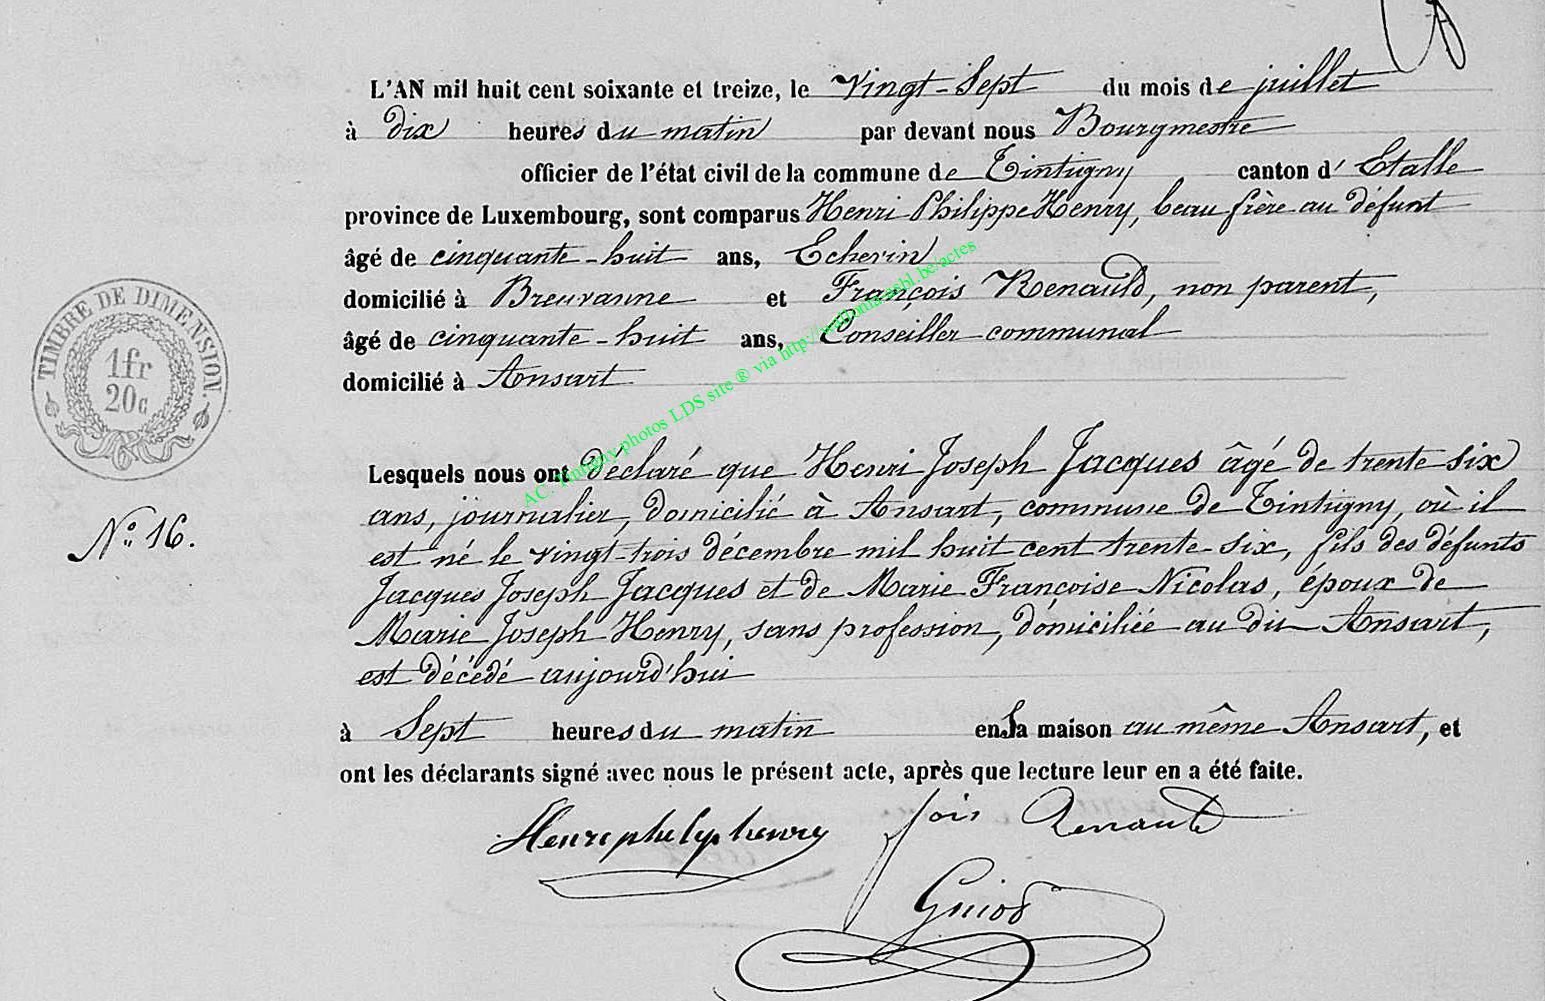 L'AN mil huit cent soixante et treize, le Vingt-Sept du mois de juillet
à dix heures du matin par devant nous Bourgmestre
officier de l'état civil de la commune de Tintigny canton d'Etalle
province de Luxembourg, sont comparus Henri Philippe Henry, beau frère au défunt
âgé de cinquante-huit ans, Echevin
domicilié à Breuvanne et François Renauld, non parent,
âgé de cinquante-huit ans, Conseiller communal
domicilié à Ansart
TIMBRE DE DIMENSION.
1fr
20c
AC. Tintigny photos LDS site ® via http://walloniaasbl.be/actes
Lesquels nous ont déclaré que Henri Joseph Jacques âgé de trente six
N° 16.
ans, journalier, domicilié à Ansart, commune de Tintigny, où il
est né le vingt-trois décembre mil huit cent trente-six, fils des défunts
Jacques Joseph Jacques et de Marie Françoise Nicolas, époux de
Marie Joseph Henry, sans profession, domiciliée au dit Ansart,
est décédé aujourd'hui
à Sept heures du matin en Sa maison au même Ansart, et
ont les déclarants signé avec nous le présent acte, après que lecture leur en a été faite.
Henri phelyp henry fois Renauld
Guiot